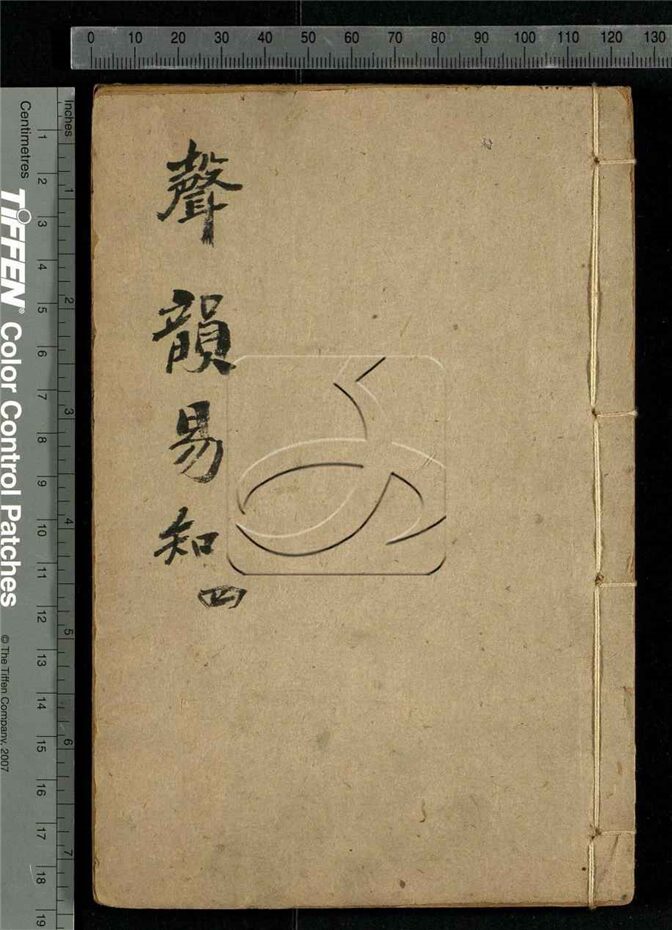 0 10 20 30 40 50 60 70 80 90 100 110 120 130
聲韻易知
四
Inches
Centimetres
1 2 3 4 5 6 7
1 2 3 4 5 6 7 8 9 10 11 12 13 14 15 16 17 18 19
TIFFEN® Color Control Patches
© The Tiffen Company, 2007